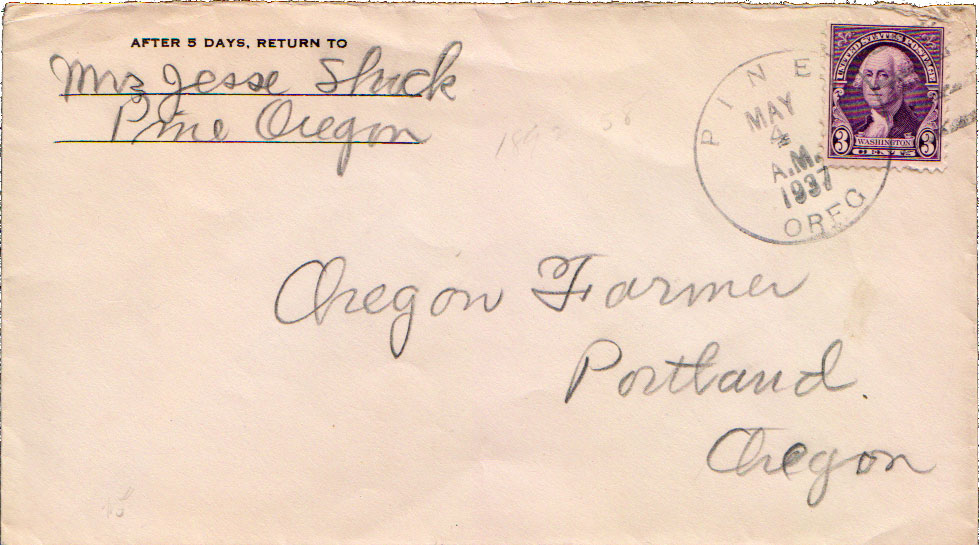 AFTER 5 DAYS, RETURN TO
Mrs Jesse Shuck
Pine Oregon
PINE
MAY
4
A.M.
1937
OREG
UNITED STATES POSTAGE
3 WASHINGTON 3
CENTS
Oregon Farmer
Portland
Oregon